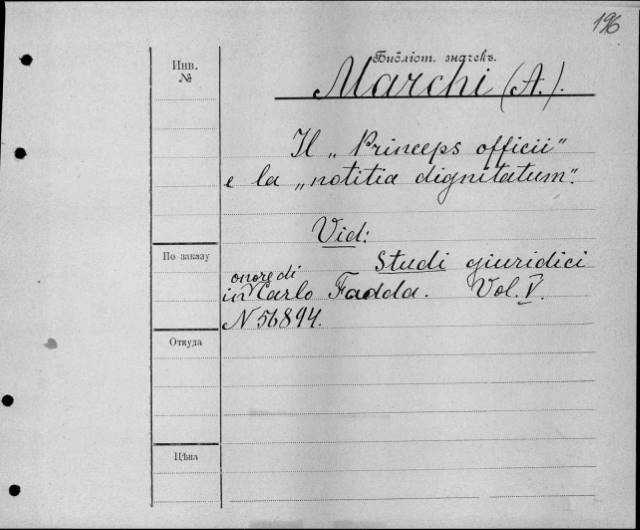 196
Инв.
№
Библіот. значекъ.
Marchi (A.).
Il „Princeps officii"
e la „notitia dignitatum".
Vid:
По заказу
Studi giuridici
onore di
in Carlo Fadda. Vol. V.
N 56894.
Откуда
Цѣна